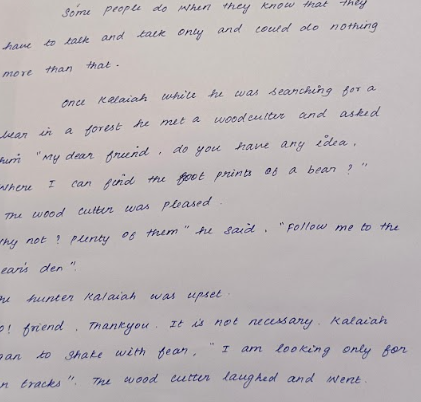 Some people do when they know that they
have to talk and talk only and could do nothing
more than that.
Once Kalaiah while he was searching for a
bear in a forest he met a woodcutter and asked
him "My dear friend, do you have any idea,
where I can find the foot prints of a bear ?"
The wood cutter was pleased.
hy not ? Plenty of them" he said. "Follow me to the
ear's den".
he hunter Kalaiah was upset.
o! friend, Thankyou. It is not necessary. Kalaiah
gan to shake with fear, "I am looking only for
n tracks". The wood cutter laughed and went.